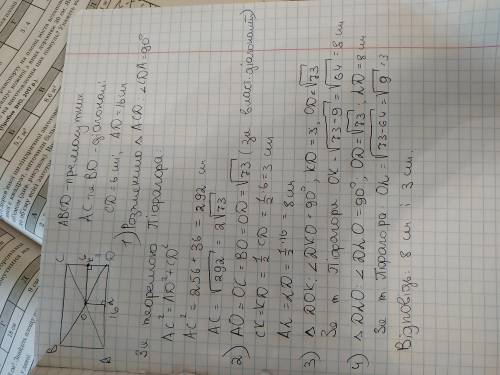 ABCD-прямокутник
AC та BD діагоналі
CD = 6 см, AD = 16 см
1) Розглянемо △ ACD. ∠CDA = 90°
За теоремою Піфагора
AC² = AD² + CD²
AC² = 256 + 36 = 292 см
AC = √292 = 2√73
2) AO = OC = BO = OD = √73 (за власт. діагоналі)
CK = KD = 1/2 CD = 1/2 · 6 = 3 см
AL = LD = 1/2 · 16 = 8 см
3) △ DOK. ∠DKO = 90° KD = 3, OD = √73
За т Піфагора OK = √73-9 = √64 = 8 см
4) △ DLO ∠DLO = 90°; OD = √73; LD = 8 см
За т Піфагора OL = √73-64 = √9 = 3
Відповідь: 8 см і 3 см.
B
C
A
D
O
K
L
6
16